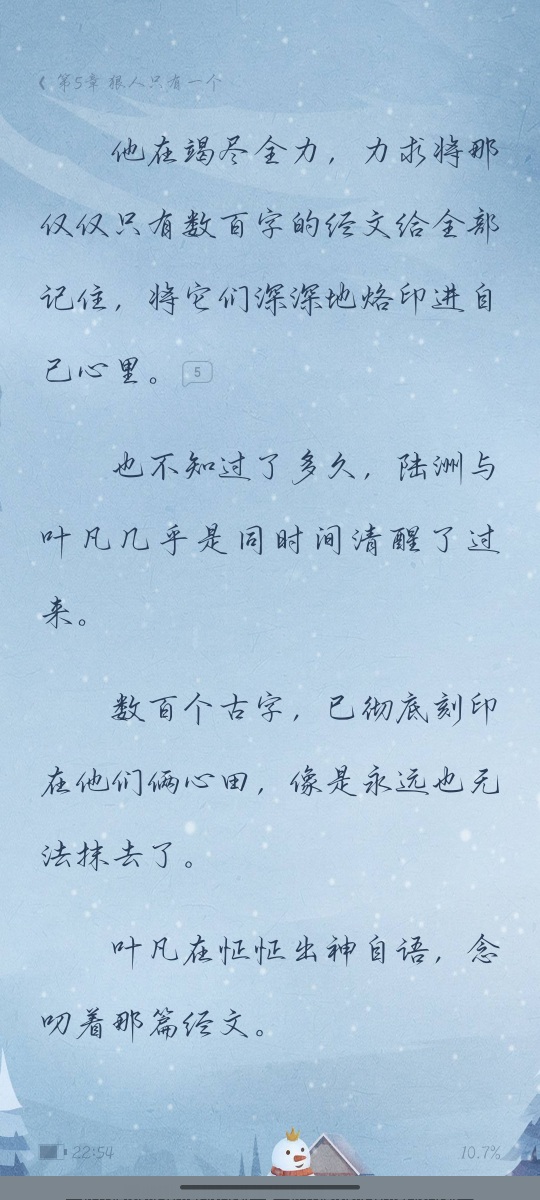 第5章 狠人只有一个
他在竭尽全力，力求将那
仅仅只有数百字的经文给全部
记住，将它们深深地烙印进自
己心里。 5
也不知过了多久，陆洲与
叶凡几乎是同时间清醒了过
来。
数百个古字，已彻底刻印
在他们俩心田，像是永远也无
法抹去了。
叶凡在怔怔出神自语，念
叨着那篇经文。
22:54 10.7%